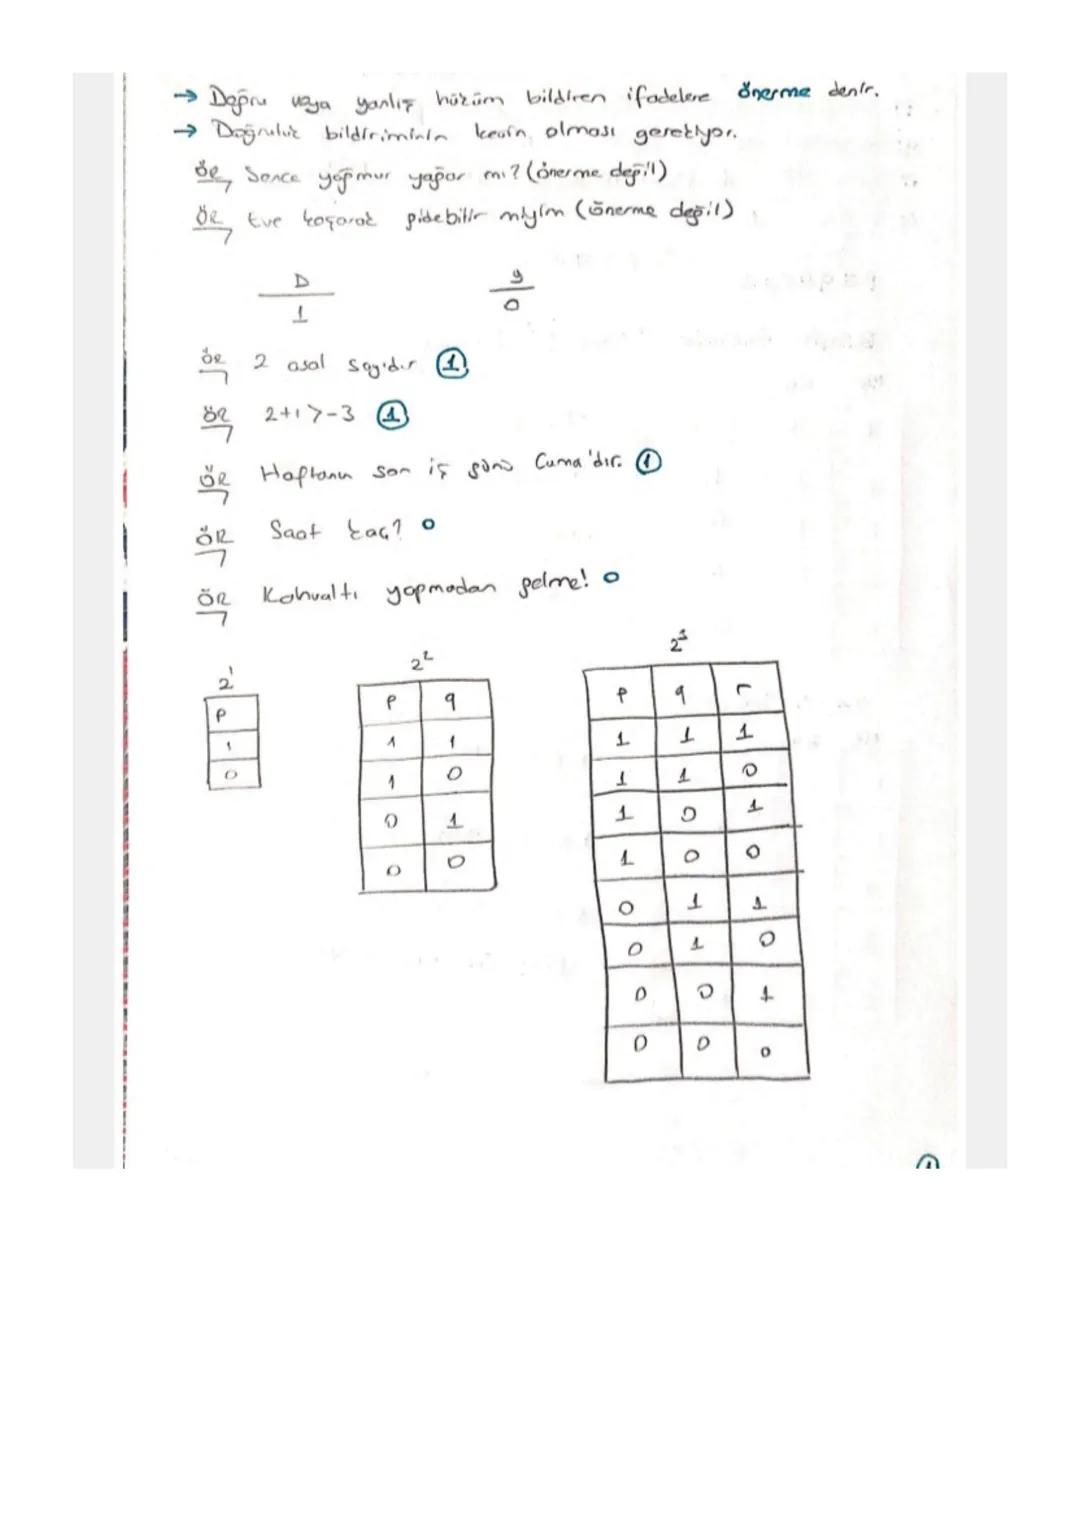 → Doğru veya yanlış hüküm bildiren ifadelere önerme denir.
→ Doğruluk bildiriminin kesin olması gerekiyor.
ÖR Sence yağmur yağar mı? (önerme değil)
ÖR Eve koşarak gidebilir miyim (önerme değil)
D y
1 0
ÖR 2 asal sayıdır 1
ÖR 2+1>-3 1
ÖR Haftanın son iş günü Cuma'dır. 1
ÖR Saat kaç? 0
ÖR Kahvaltı yapmadan gelme! 0
2¹
p
1
0
2²
p q
1 1
1 0
0 1
0 0
2³
p q r
1 1 1
1 1 0
1 0 1
1 0 0
0 1 1
0 1 0
0 0 1
0 0 0
1